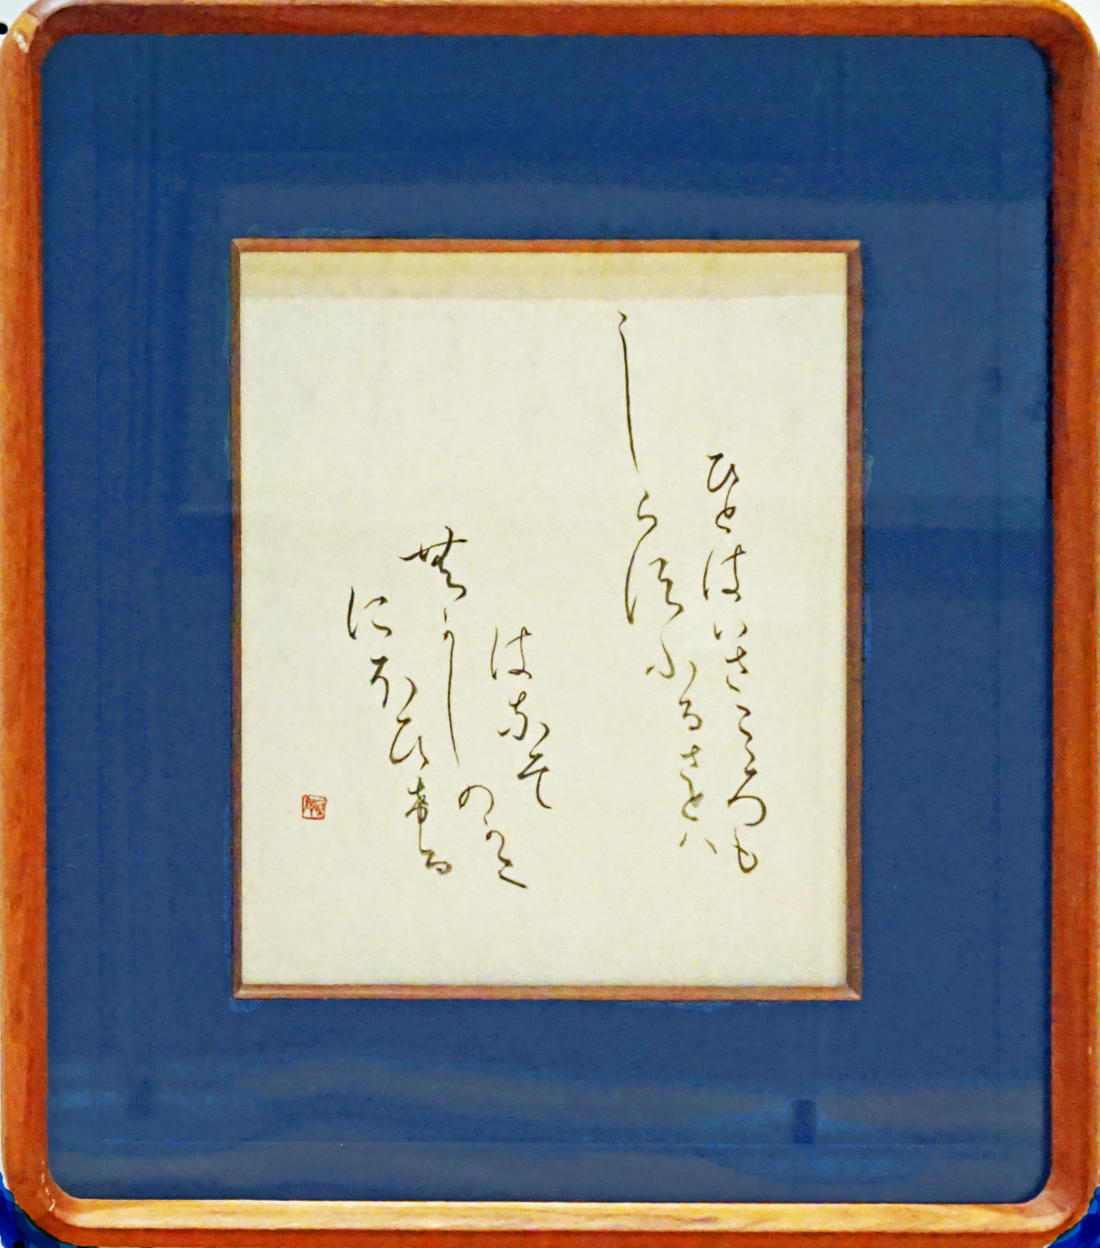 ひとはいさこゝろも
しら須ふるさとハ
はなそ
無かしのかに
にほひ希る